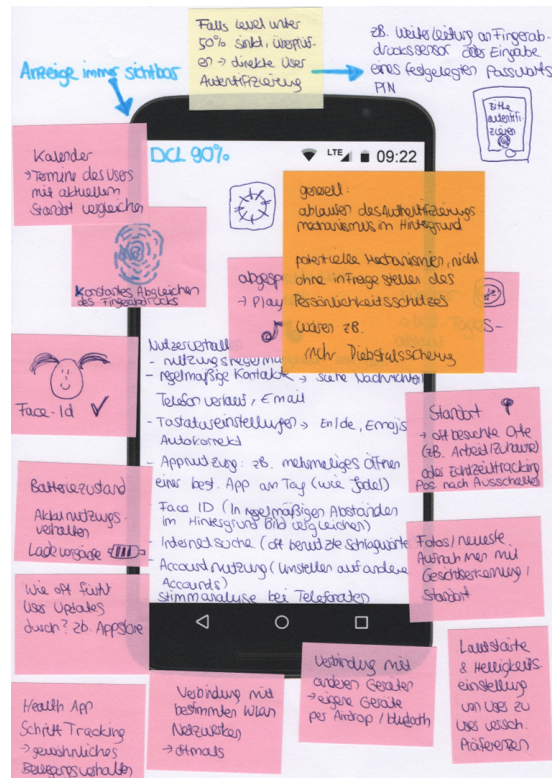 Falls Level unter
50% sinkt, überprüf-
en → direkte User
Autentifizierung
zB. Weiterleitung an Fingerab-
drucksensor oder Eingabe
eines festgelegten Passworts
PIN
Anzeige immer sichtbar
Bitte
autentifi-
zieren
DCL 90%
LTE 09:22
Kalender
→ Termine des Users
mit aktuellem
Standort vergleichen
Konstantes Abgleichen
des Fingerabdrucks
generell:
ablaufen des Authentifizierungs
mechanismus im Hintergrund
potentielle Mechanismen, nicht
ohne infrage stellen des
Persönlichkeitsschutzes
wären zB.
mehr Diebstalssicherung
abgespe
→ Play
Nutzerverhalten
- nutzungsregelmä
- regelmäßige Kontakte → siehe Nachrichten
Telefonverlauf, Email
- Tastatureinstellungen → En/de, Emojis
Autokorrekt
- Appnutzung: zB. mehrmaliges Öffnen
einer best. App am Tag (wie Jodel)
- Face ID (In regelmäßigen Abständen
im Hintergrund Bild vergleichen)
- Internetsuche (oft benutzte Schlagwörte
- Accountnutzung (umstellen auf andere
Accounts)
Stimmanalyse bei Telefonaten
Face-Id ✓
Standort
→ oft besuchte Orte
(zB. Arbeit/zuhause)
oder Echtzeittracking
Pos. nach Ausschalten
Batteriezustand
Akkunutzungs-
verhalten
Ladevorgänge
Fotos/neueste
Aufnahmen mit
Gesichtserkennung/
Standort
Wie oft führt
User Updates
durch? zb. Appstore
Health App
Schritt Tracking
→ gewöhnliches
Bewegungsverhalten
Verbindung mit
bestimmten Wlan
Netzwerken
→ oftmals
Verbindung mit
anderen Geräten
→ eigene Geräte
per Airdrop / bluetooth
Lautstärke
& Helligkeits-
einstellung
von User zu
User versch.
Präferenzen